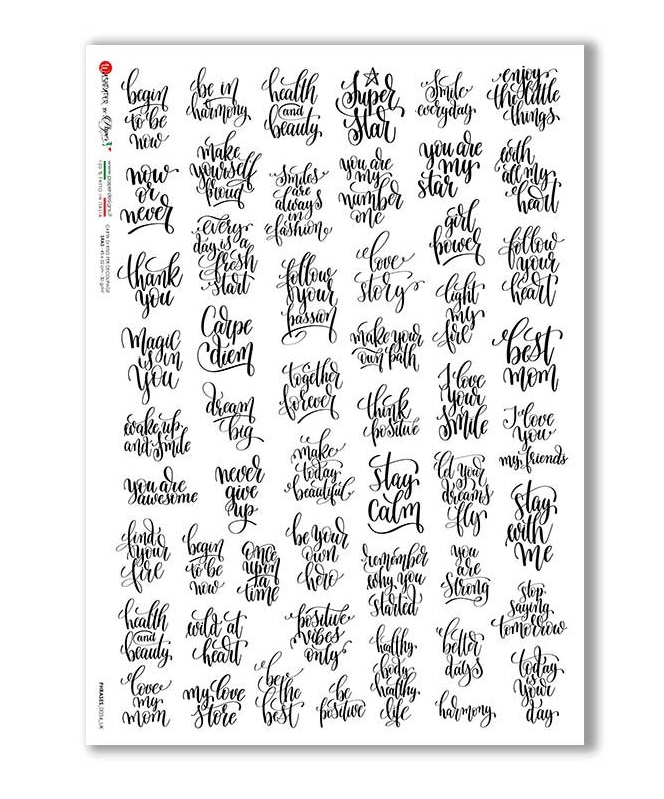 begin
to be
now
be in
harmony
health
and
beauty
Super
Star
Smile
everyday
enjoy
the little
things
now
or
never
make
yourself
proud
smiles
are
always
in
fashion
you are
my
number
one
you are
my
star
with
all my
heart
thank
you
every
day is a
fresh
start
follow
your
passion
love
story
girl
power
follow
your
heart
Magic
is in
you
Carpe
diem
together
forever
make your
own path
light
my
fire
best
mom
wake up
and smile
dream
big
make
today
beautiful
think
positive
I love
your
smile
I love
you
my friends
you are
awesome
never
give
up
be your
own
hero
stay
calm
let your
dreams
fly
stay
with
me
find
your
fire
begin
to be
now
Once
upon
a
time
remember
why you
started
you
are
strong
stop
saying
tomorrow
health
and
beauty
wild at
heart
positive
vibes
only
healthy
body
healthy
life
better
days
today
is
your
day
love
my
mom
my love
store
be
the
best
be
positive
harmony
www.paperdesigns.it
100% FATTO IN ITALIA
CARTA DI RISO PER DECOUPAGE
PHRASES_0034_UK